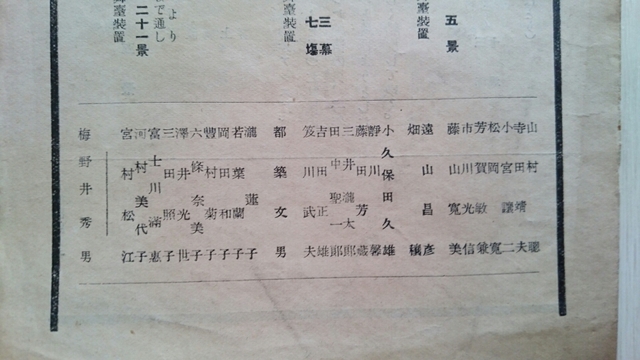 五景
臺裝置
三幕
七場
臺裝置
より
で通し
二十一景
臺裝置
山村聰
寺田靖夫
小宮讓二
松岡寛
芳賀敏兼
市川光信
藤山寛美
遠山昌彥
畑穰
小久保田久雄
靜川馨
藤田芳藏
三井瀧太郎
田中聖一郎
吉田正雄
笈川武夫
都築文男
瀧蓮子
若葉蘭子
岡田和子
豐村菊子
六條奈美子
澤井光世
三田照子
富士川滿惠
河村美代子
宮村松江
梅野井秀男